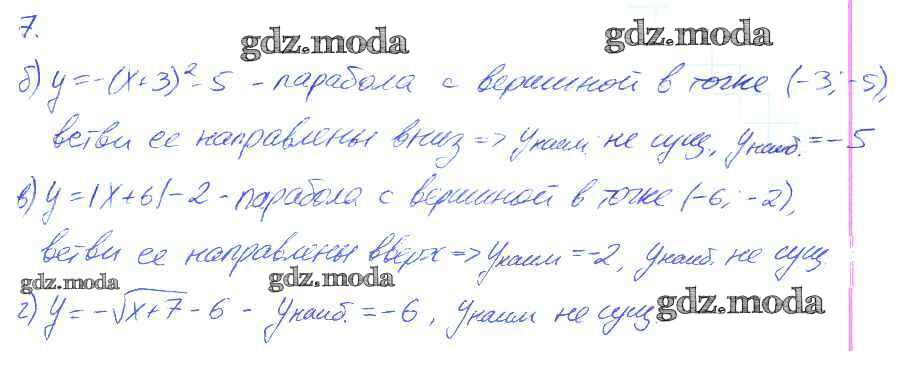 7.
gdz.moda gdz.moda
б) y = -(x+3)² - 5 - парабола с вершиной в точке (-3; -5),
ветви ее направлены вниз => yнаим. не сущ, yнаиб. = -5
в) y = |x+6| - 2 - парабола с вершиной в точке (-6; -2),
ветви ее направлены вверх => yнаим = -2, yнаиб. не сущ
gdz.moda gdz.moda gdz.moda
г) y = -√x+7 - 6 - yнаиб. = -6, yнаим не сущ.